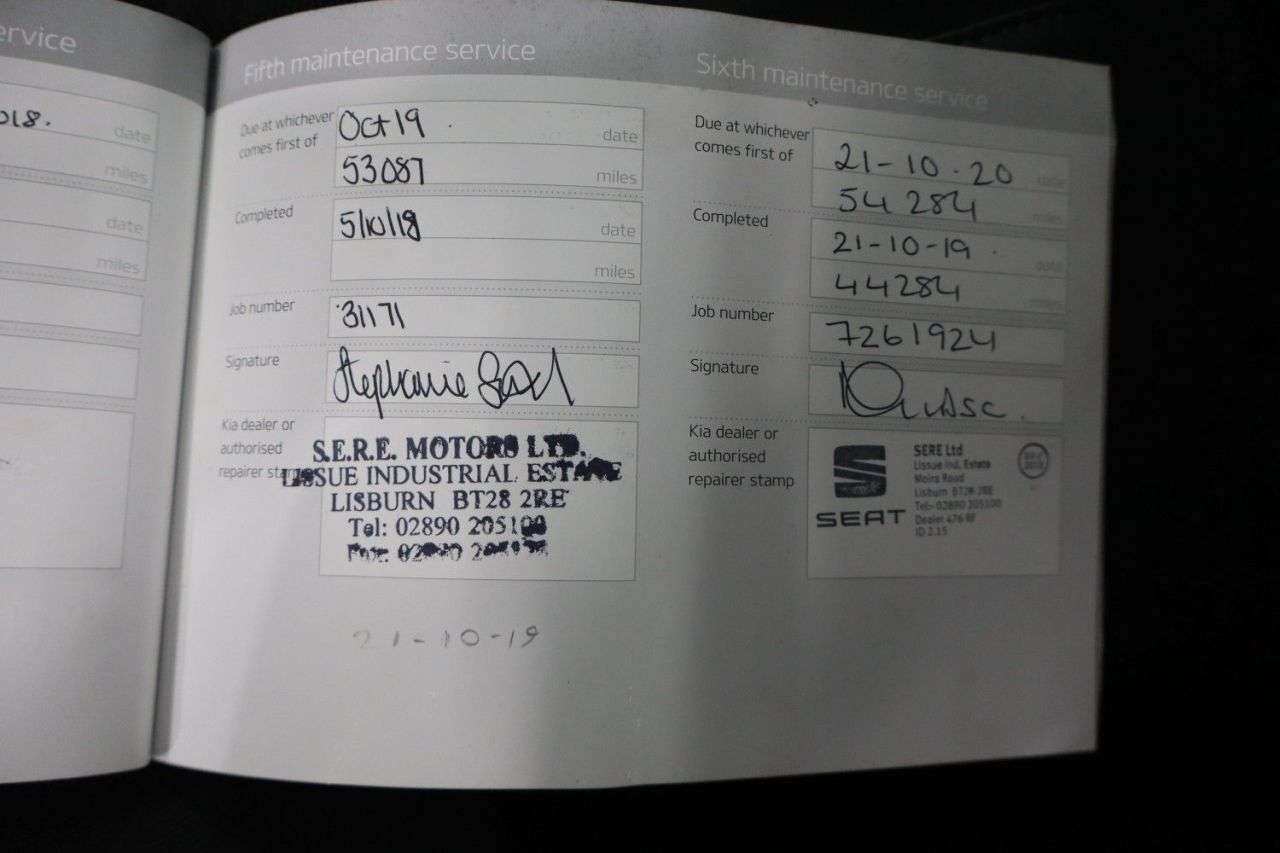 ervice
018.
date
miles
date
miles
Fifth maintenance service
Due at whichever
comes first of
Oct 19
date
53087
miles
Completed
5/10/18
date
miles
Job number
31171
Signature
Stephanie
Kia dealer or
authorised
repairer stamp
S.E.R.E. MOTORS LTD.
LISSUE INDUSTRIAL ESTATE
LISBURN BT28 2RE
Tel: 02890 205100
21-10-19
Sixth maintenance service
Due at whichever
comes first of
21-10-20
date
54284
miles
Completed
21-10-19
date
44284
miles
Job number
7261924
Signature
Kia dealer or
authorised
repairer stamp
SEAT
SERE Ltd
Lissue Ind. Estate
Moira Road
Lisburn BT28 2RE
Tel:- 02890 205100
Dealer 476 RF
ID 2.15